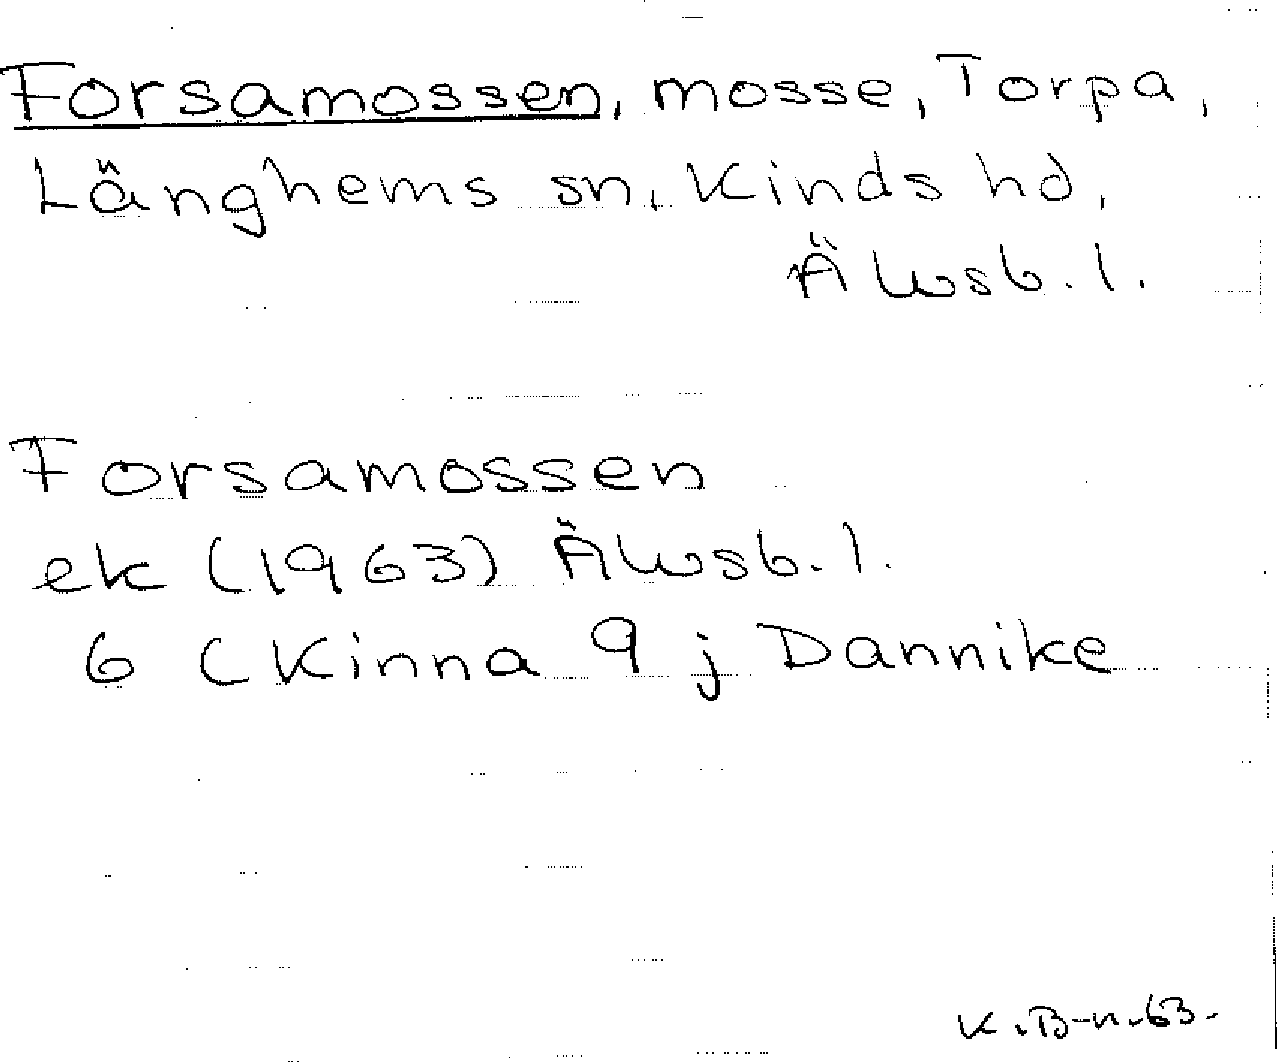 Forsamossen, mosse, Torpa,
Länghems sn, Kinds hd,
Älvsb. l.
Forsamossen
ek (1963) Älvsb. l.
6 (Kinna 9 j Dannike
K. B-n. 63.